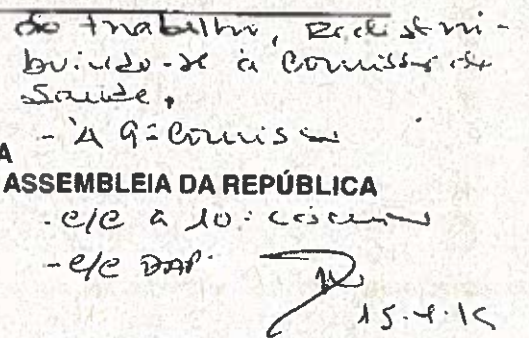 do trabalho, Redistri-
buindo-se à Comissão de
Saúde.
- À 9ª Comissão
A
ASSEMBLEIA DA REPÚBLICA
- c/c à 10ª
- c/c DAP.